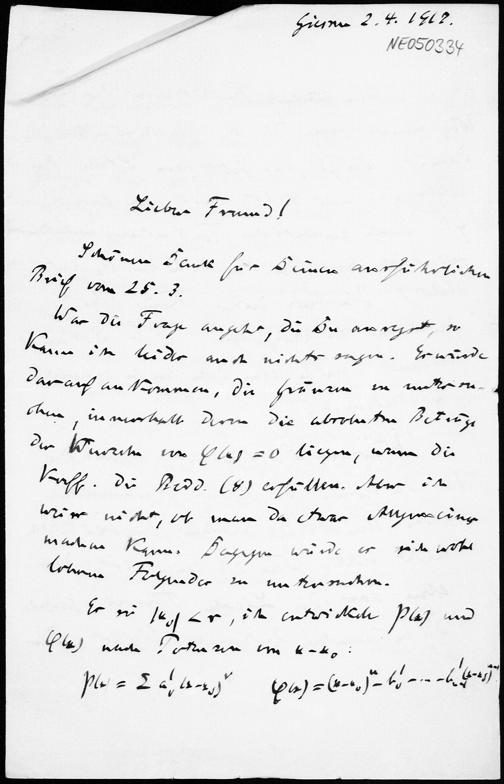 Giessen 2.4.1917.
NE050334
Lieber Freund!
Schönen Dank für Deinen ausführlichen
Brief vom 25. 3.
Was die Frage angeht, die Du anregst, so
kann ich leider auch nichts sagen. Es würde
darauf ankommen, die Grenzen zu untersu-
chen, innerhalb deren die absoluten Beträge
der Wurzeln von φ(x) = 0 liegen, wenn die
Koeff. die Bedd. erfüllen. Aber ich
weiss nicht, ob man da etwas Allgemeines
machen kann. Dagegen würde es sich wohl
lohnen Folgendes zu untersuchen.
Es sei |x₀| < r, ich entwickle P(x) und
φ(x) nach Potenzen von x-x₀:
P(x) = Σ a'ᵥ (x-x₀)ᵛ φ(x) = (x-x₀)ⁿ - b'₀ - ... - b'ₙ₋₁(x-x₀)ⁿ⁻¹